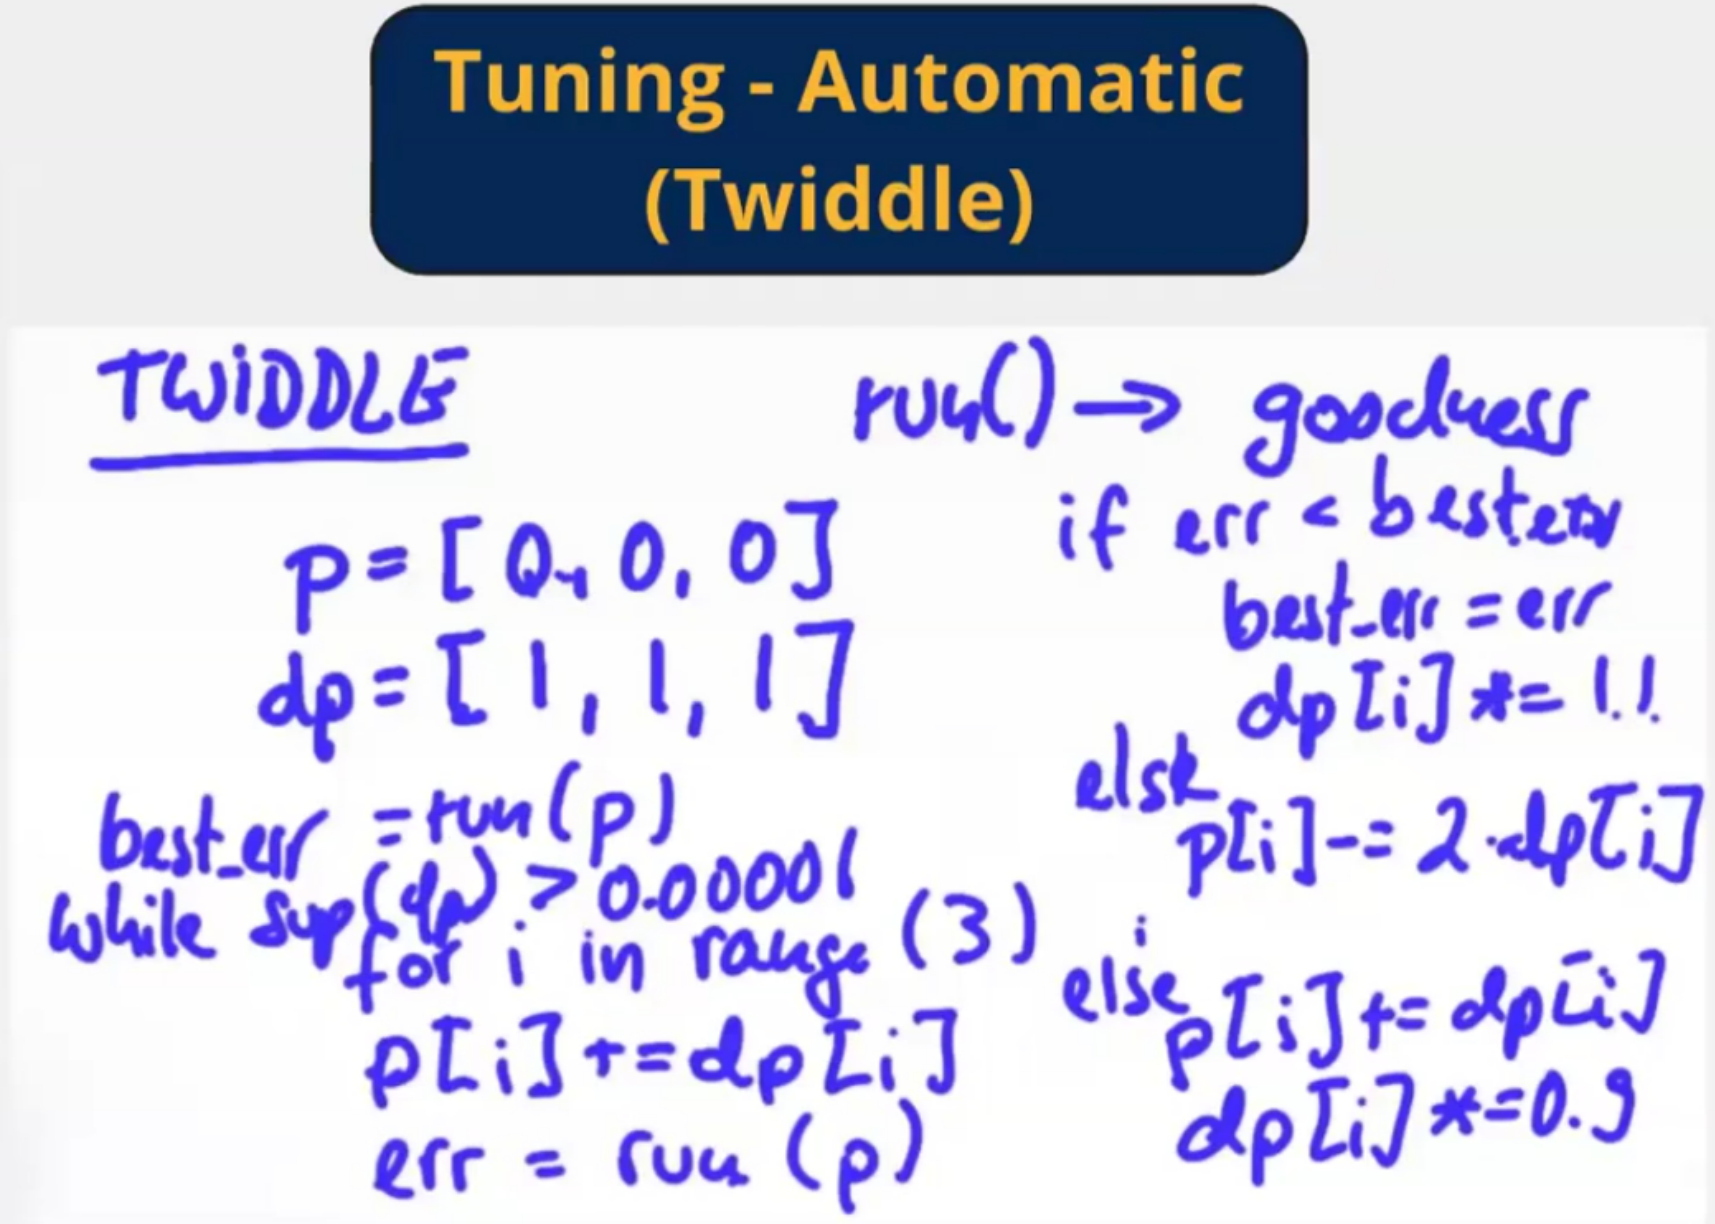 Tuning - Automatic
(Twiddle)
TWIDDLE
p = [0, 0, 0]
dp = [1, 1, 1]
best_err = run(p)
while sup(dp) > 0.00001
for i in range (3)
p[i] += dp[i]
err = run (p)
run() → goodness
if err < best_err
best_err = err
dp[i] *= 1.1
else
p[i] -= 2·dp[i]
else
p[i] += dp[i]
dp[i] *= 0.9